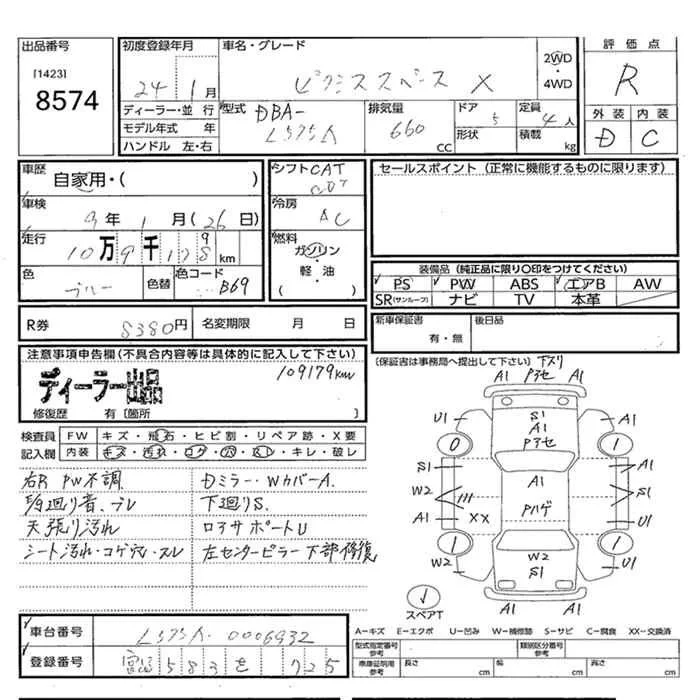 出品番号
[1423]
8574
初度登録年月
24年 1月
車名・グレード
ピクシススペース X
2WD
・
4WD
評価点
R
外装 内装
D C
ディーラー・並行
モデル年式 年
ハンドル 左・右
型式 DBA-
L575A
排気量
660 CC
ドア 5
形状
定員 4人
積載 kg
車歴
自家用・( )
車検
9年 1月(26日)
走行
10万9千179km
色
ブルー
色替
色コード
B69
シフト CAT
冷房
AC
燃料
ガソリン
・
軽・油
( )
セールスポイント (正常に機能するものに限ります)
装備品 (純正品に限り〇印をつけてください)
PS PW ABS エアB AW
SR(サンルーフ) ナビ TV 本革
R券 8380円
名変期限 月 日
新車保証書
有・無
後日品
(保証書は事務局へ提出して下さい)
注意事項申告欄(不具合内容等は具体的に記入して下さい)
109179km
ディーラー出品
修復歴 有〔箇所 〕
検査員
記入欄
FW キズ・飛石・ヒビ割・リペア跡・X要
内装 キズ・汚れ・コゲ・穴・スレ・キレ・破レ
右R PW不調
Dミラー・WカバーA.
下廻りS.
天張り汚れ
ロアサポートU
シート汚れ・コゲ穴・スレ
左センターピラー下部修復
下スリ
A1 Pアセ A1
U1 S1 A1
A1
Pアセ
0 1
S1 A1 A1
W2 Pハゲ S1
A1 XX U1
1 W2 1
W2 S1 U1
A1 A1
スペアT
A-キズ E-エクボ U-凹み W-補修跡 S-サビ C-腐食 XX-交換済
車台番号 L575A-0006932
登録番号 583 を 725
型式指定番号
参考
類別区分番号
参考
車庫証明用
参考
長さ cm
幅 cm
高さ cm